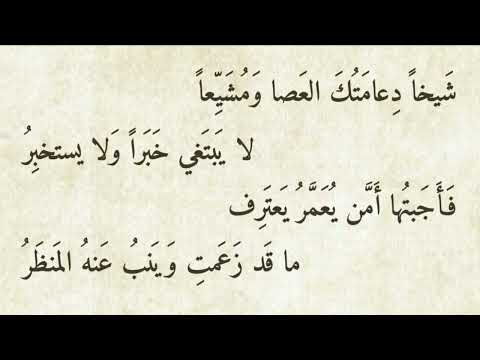 شَيخاً دِعامَتُكَ العَصا وَمُشَيِّعاً
لا يَبتَغي خَبَراً وَلا يستخبِرُ
فَأَجَبتُها أَمَّن يُعَمَّرُ يَعتَرِف
ما قَد زَعَمتِ وَيَنبُ عَنهُ المَنظَرُ